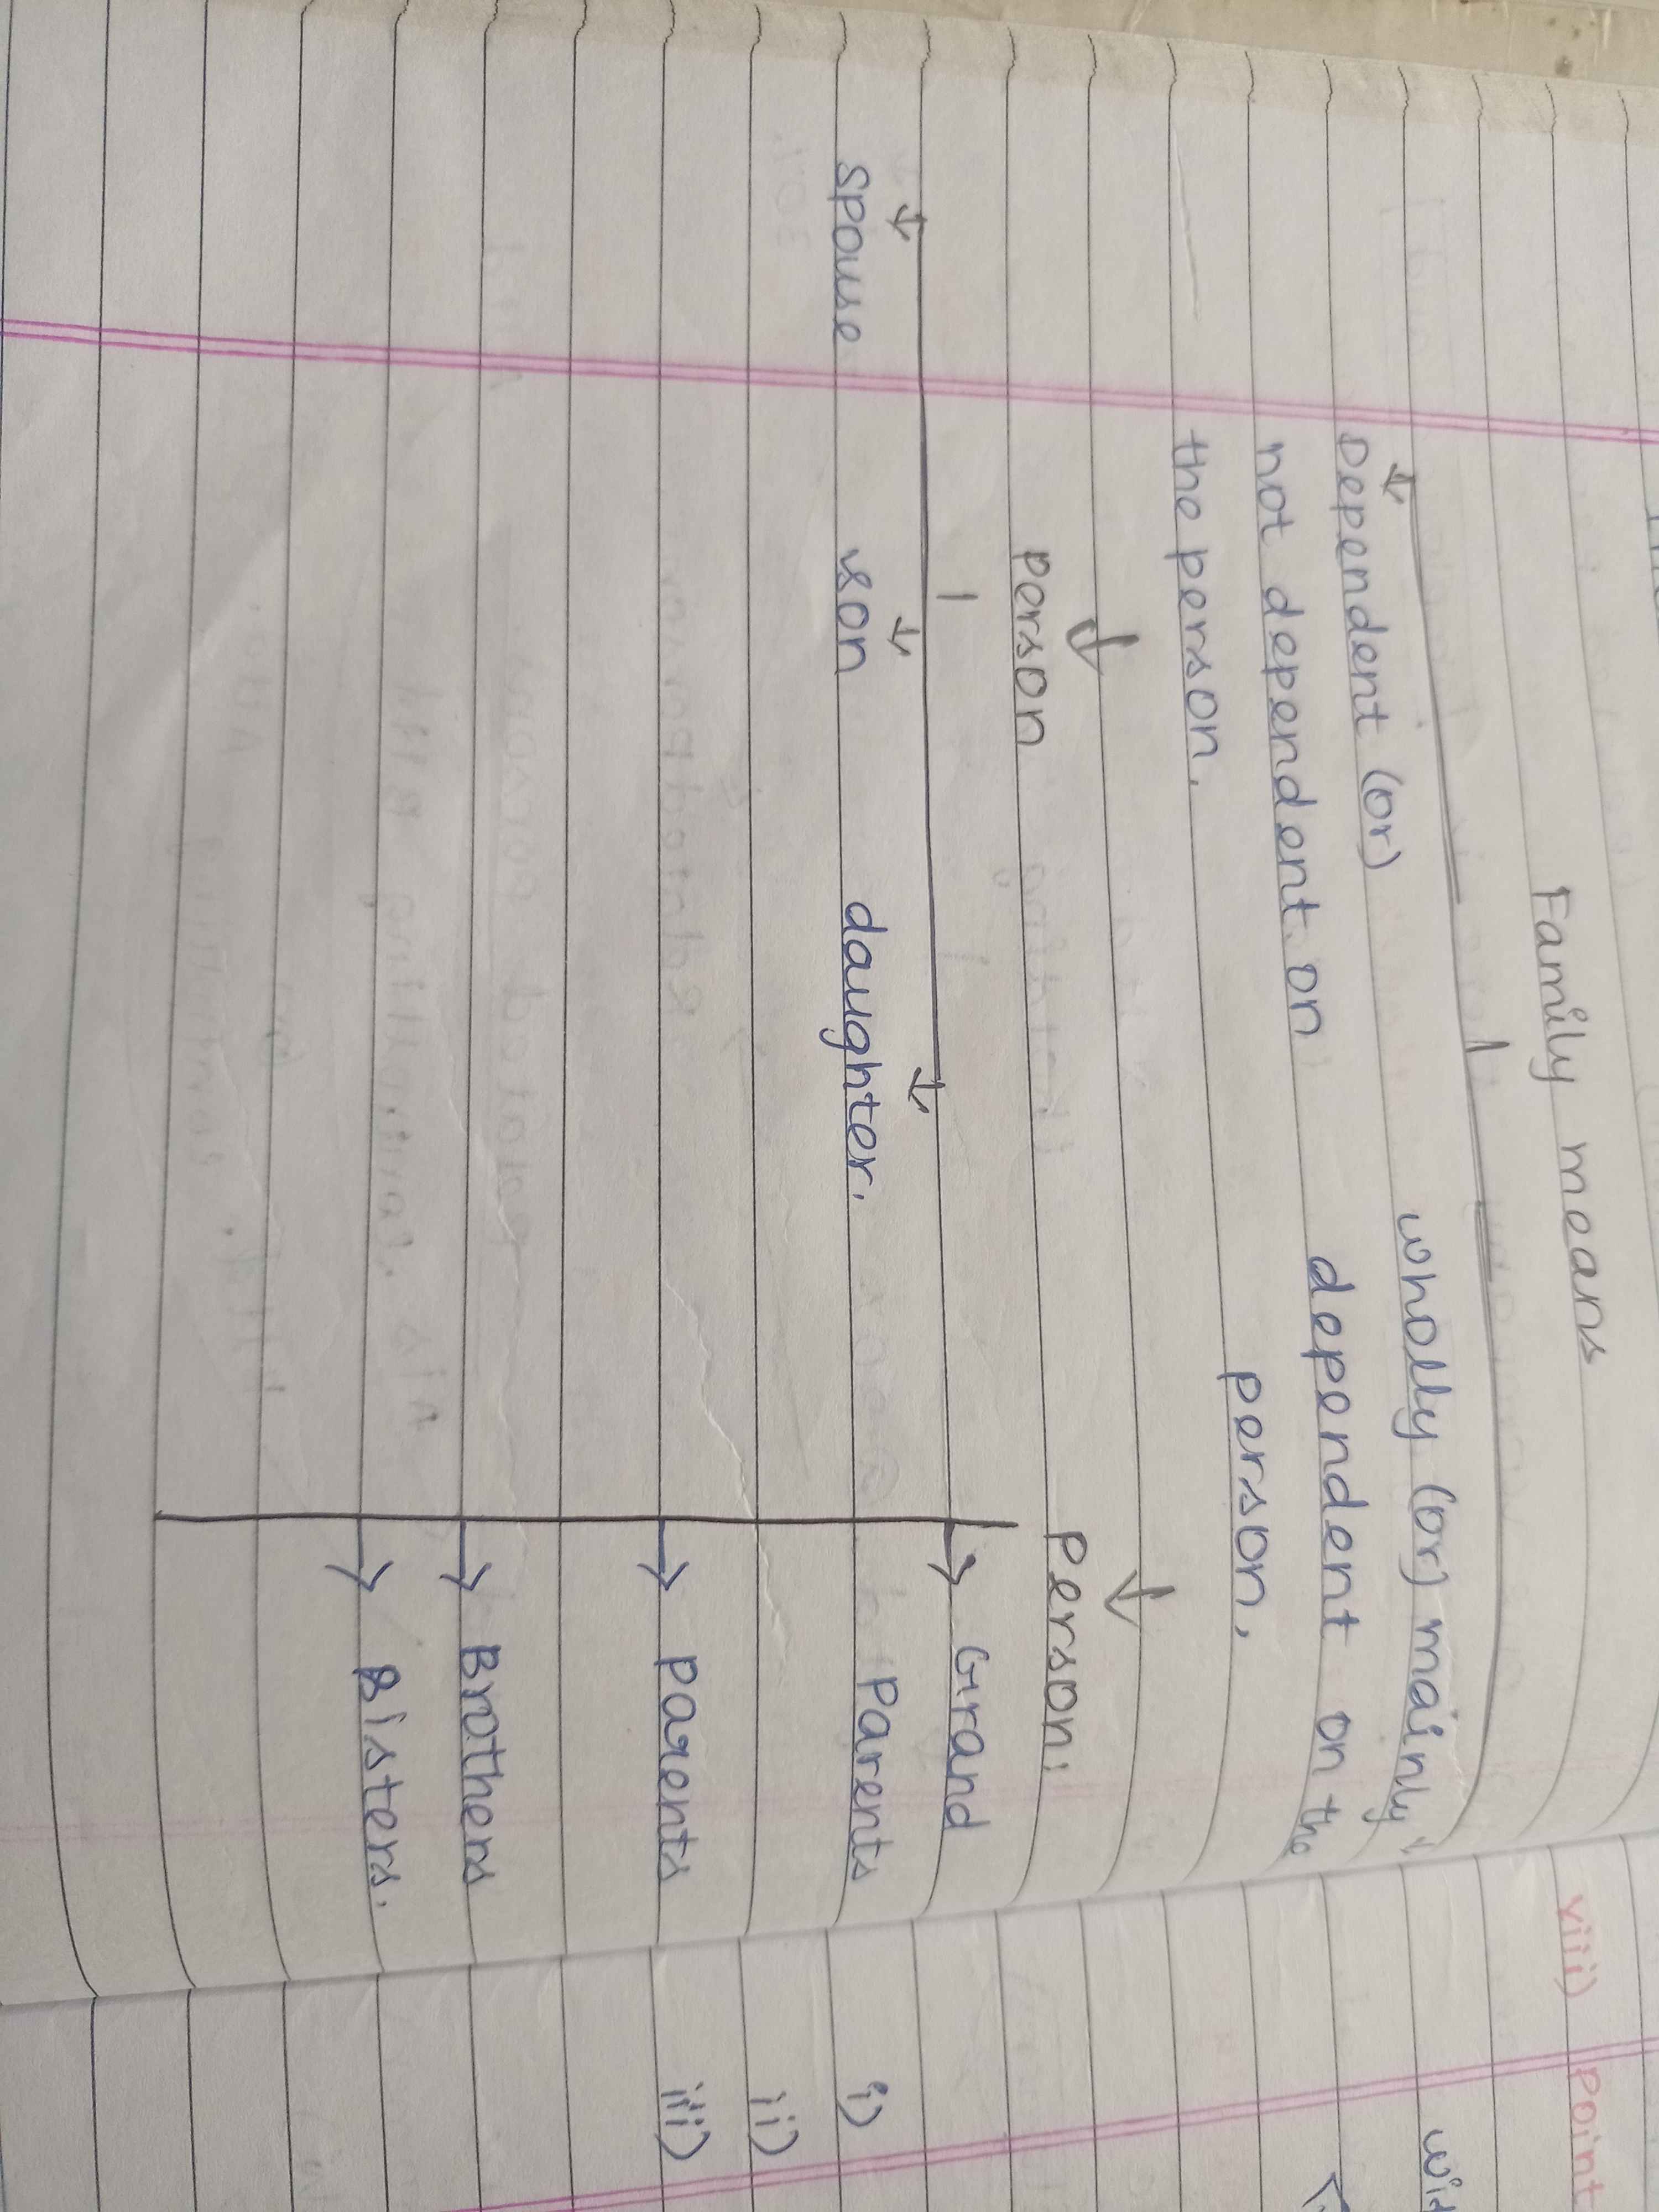 Family means
Dependent (or)
not dependent on
the person.
wholly (or) mainly
dependent on the
person.
person
person.
spouse son daughter.
Grand
Parents
Parents
Brothers
Sisters.
viii) Point
i)
ii)
iii)